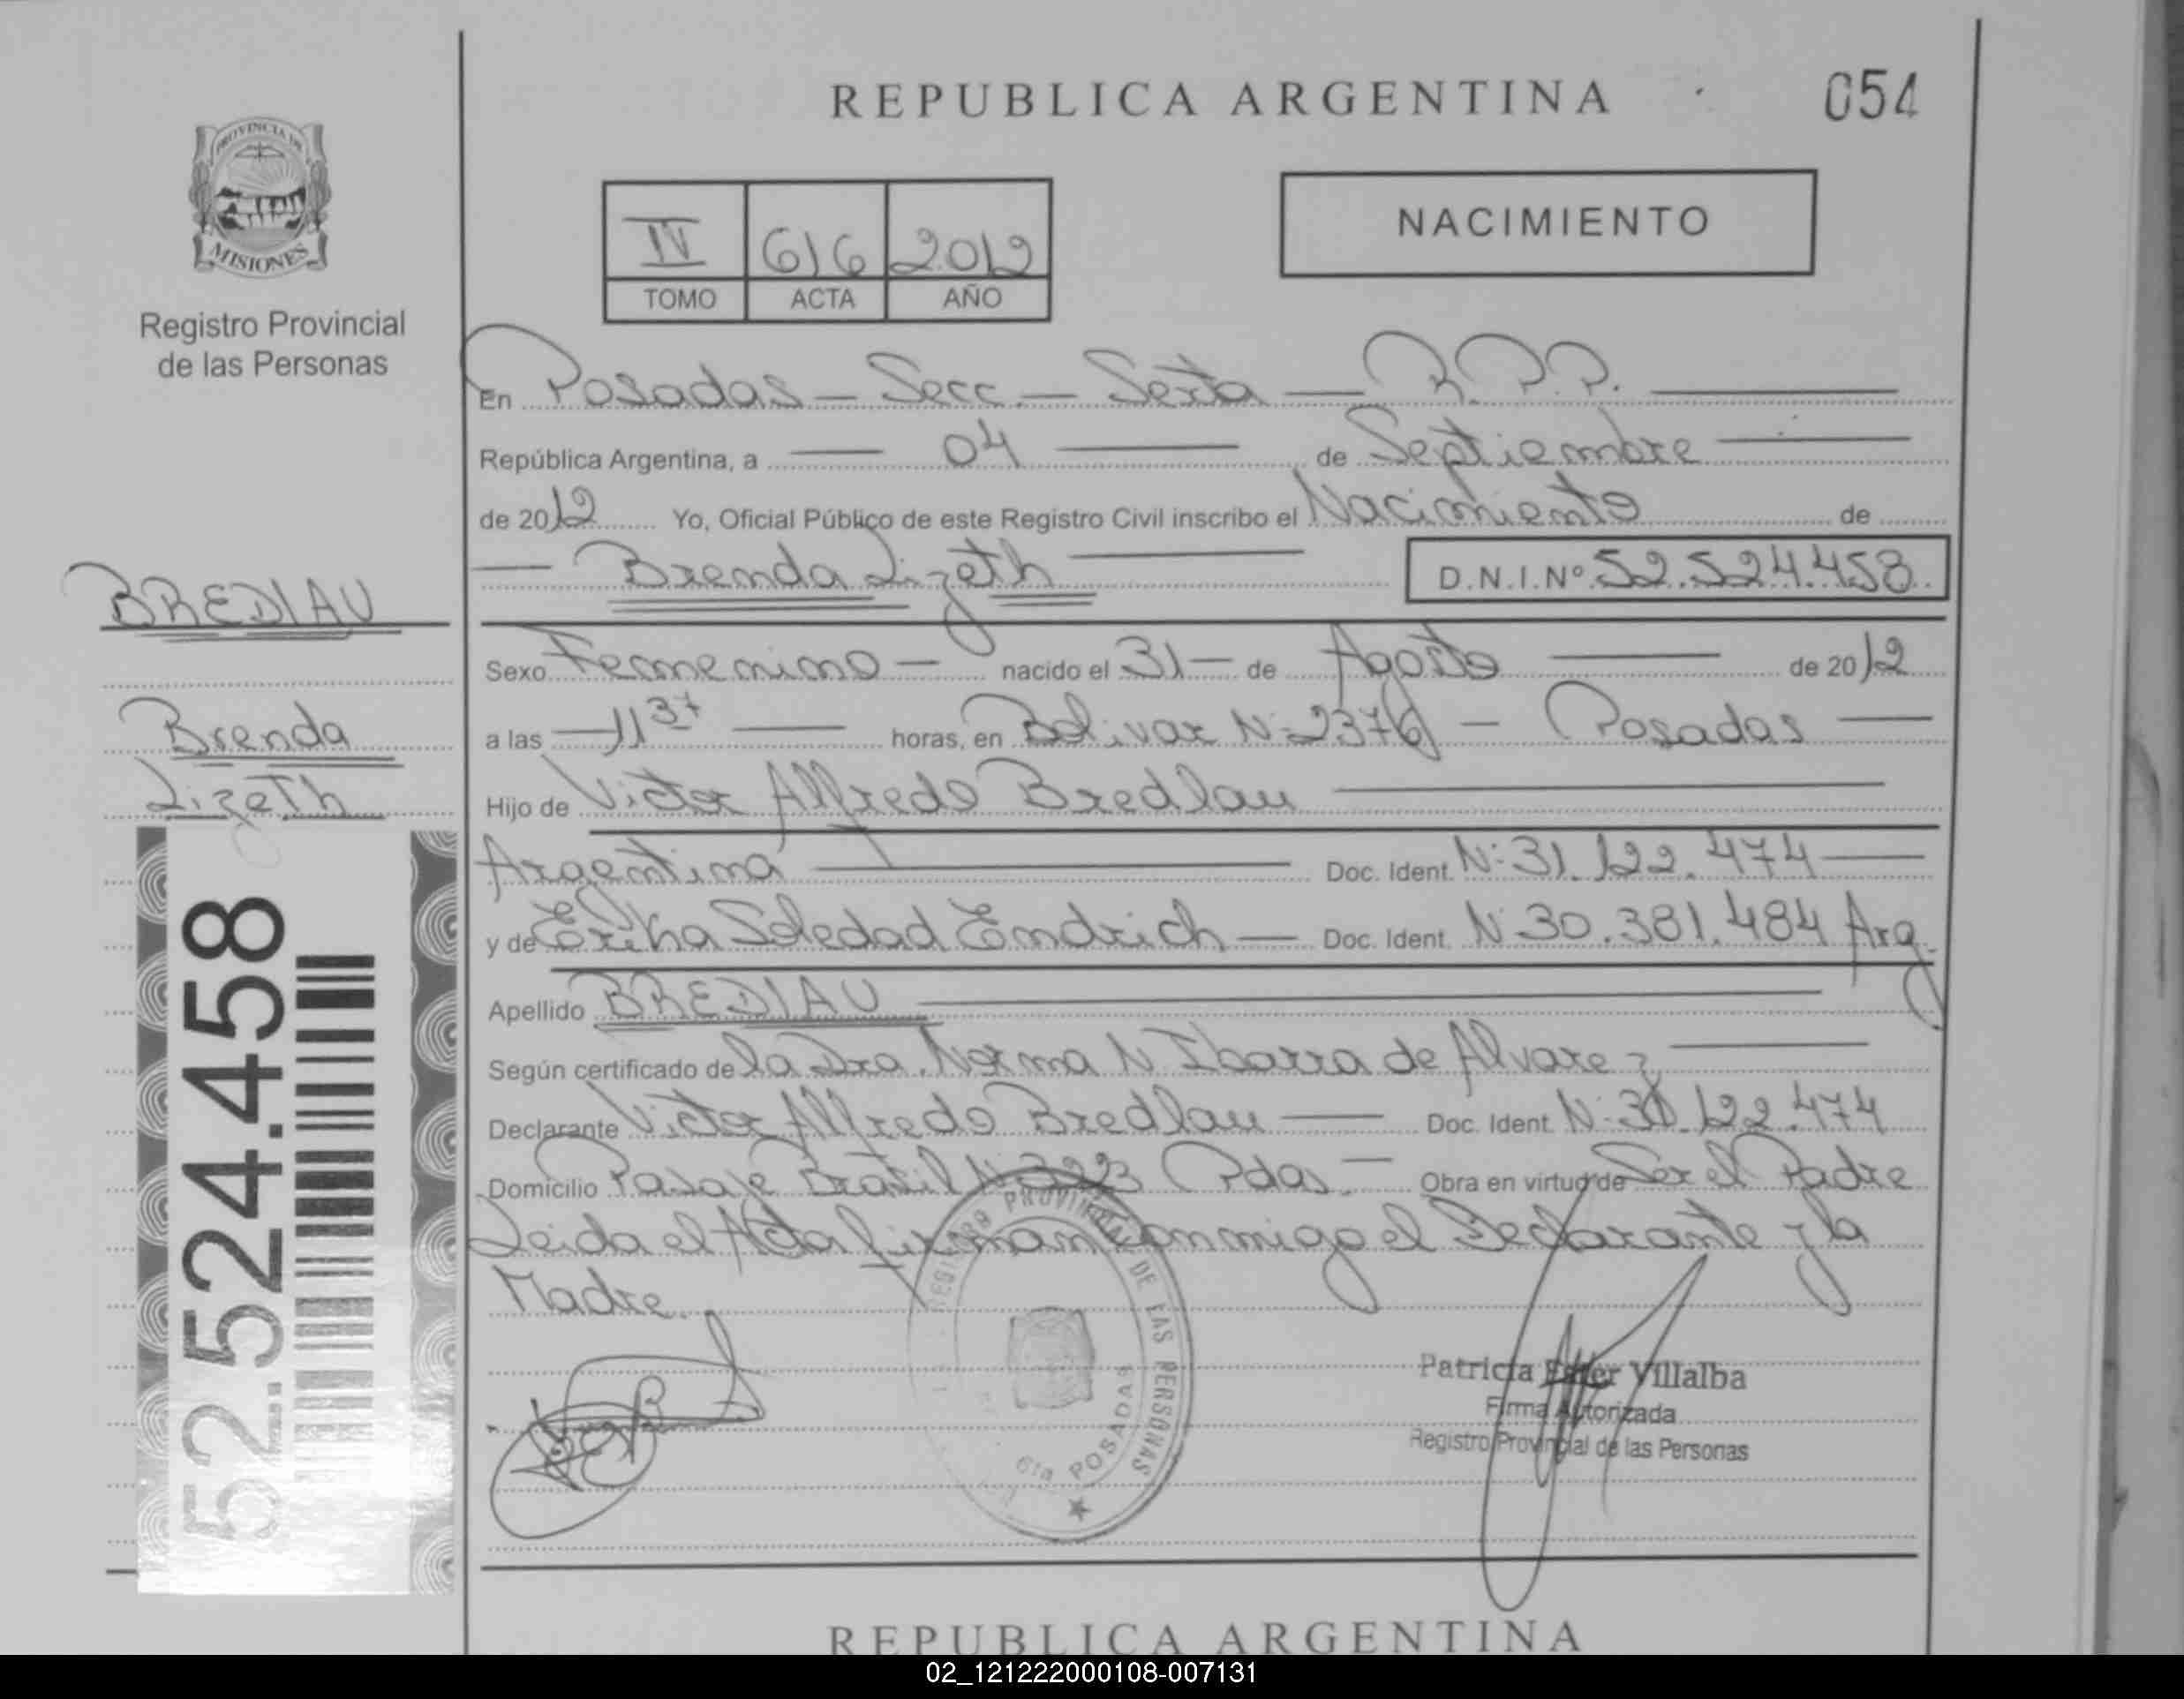 REPUBLICA ARGENTINA
054
PROVINCIA DE
MISIONES
Registro Provincial
de las Personas
IV 616 2012
TOMO ACTA AÑO
NACIMIENTO
En Posadas - Secc. - Sexta - R.P.P.
República Argentina, a 04 de Septiembre
de 2012 Yo, Oficial Público de este Registro Civil inscribo el Nacimiento de
Brenda Lizeth D.N.I. Nº 52.524.458
BREDLAU
Brenda
Lizeth
52.524.458
Sexo Femenino - nacido el 31 - de Agosto de 2012
a las 11 37 horas, en Bolivar Nº 2376 - Posadas
Hijo de Victor Alfredo Bredlau
Argentina Doc. Ident. Nº 31.122.474
y de Erika Soledad Endrich - Doc. Ident. Nº 30.381.484 Arg.
Apellido BREDLAU
Según certificado de la Dra. Norma N Ibarra de Alvarez
Declarante Victor Alfredo Bredlau Doc. Ident. Nº 31.122.474
Domicilio Pasaje Brasil Pdas. Obra en virtud de Ser el Padre
Leida el Acta firman conmigo el Declarante y la
Madre.
REGISTRO PROVINCIAL DE LAS PERSONAS
6ta POSADAS
Patricia Ester Villalba
Firma Autorizada
Registro Provincial de las Personas
REPUBLICA ARGENTINA
02_121222000108-007131